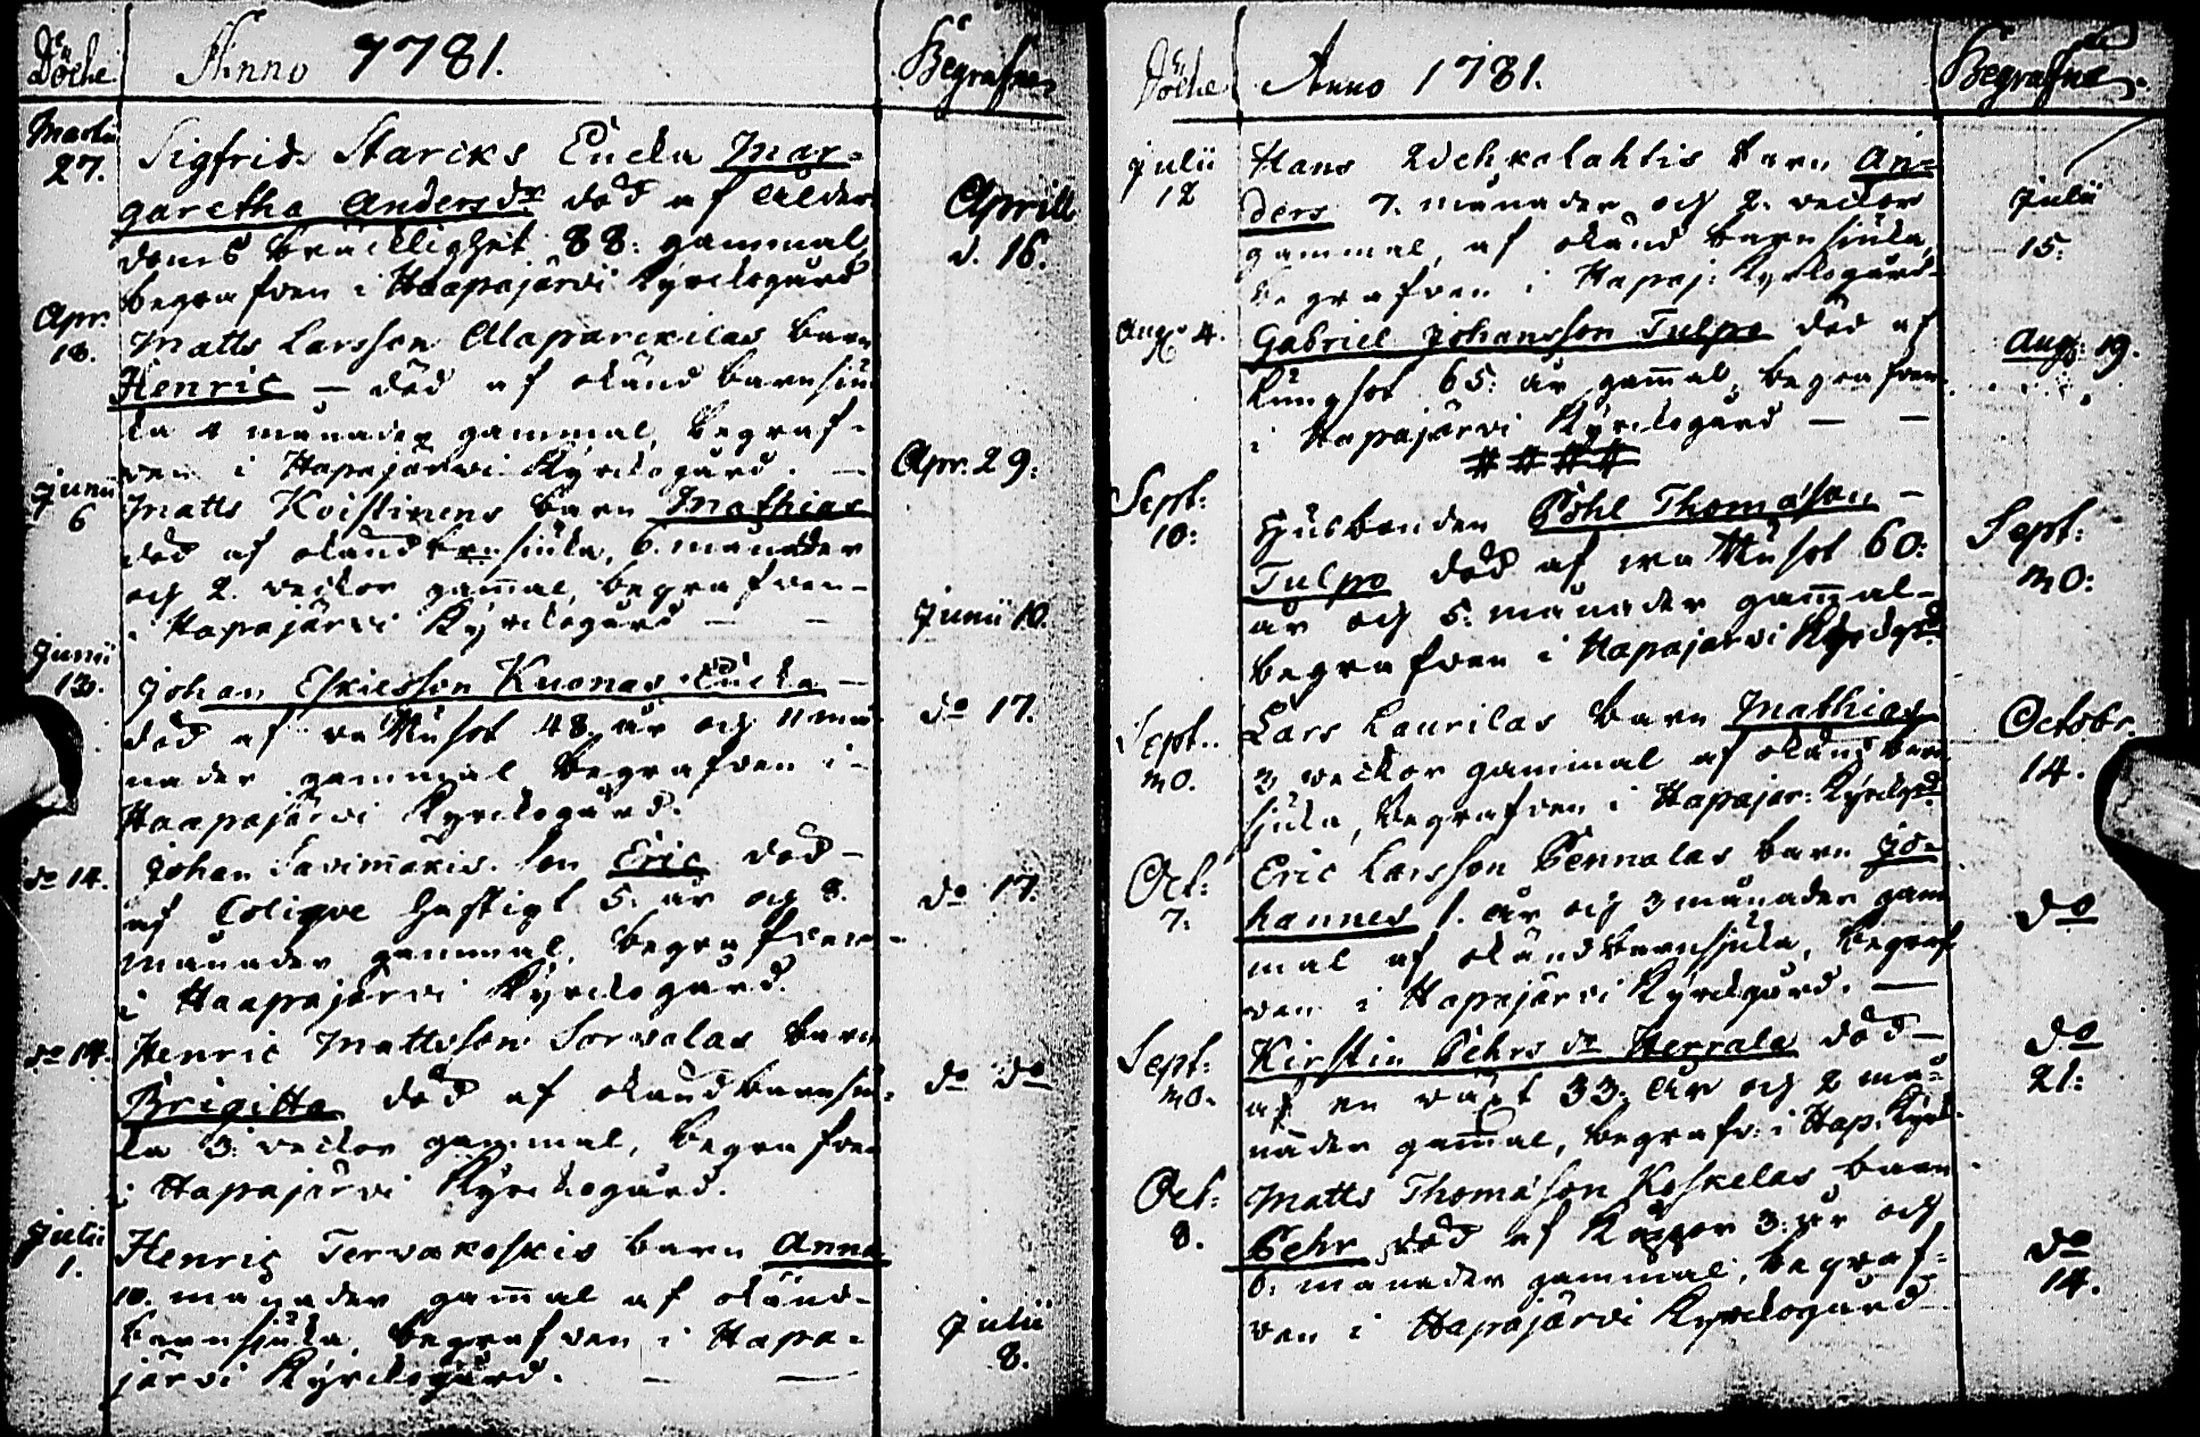 Döde Anno 1781. Begrafne
Martii 27. Sigfrids Starcks Encka Mar=
garetha Andersdr död af ålder
doms bräcklighet 88: gammal, Aprill d. 16.
begrafven i Haapajärvi Kyrckogård
Apr. 18. Matts Larsson Alaparckilas barn
Henric — död af okänd barnsiu
ka 4 månader gammal, begraf-
ven i Hapajärvi Kyrckogård. — Apr. 29:
Junii 6 Matts Koistinens barn Mathias
död af okändbarnsiuka, 6. månader
och 2. veckor gamal, begrafven-
i Hapajärvi Kyrckogård — — Junii 10.
Junii 13. Johan Eskilsson Kuonas Encka —
död af 48 år och 11 må do 17.
nader gammal begrafven i-
Haapajärvi Kyrckogård.
do 14. Johan Savimäkis son Eric död —
af Colique hastigt 5. år och 8. do 17.
månader gammal, begrafven-
i Haapajärvi Kyrckogård.
do 14. Henric Mattsson Sorvolas barn
Brigitta död af okändbarnsiu- do do
ka 3: veckor gammal, begrafven
i Hapajärvi Kyrckogård.
Julii 1. Henric Tervakoskis barn Anna
10. månader gamal af okänd-
barnsjuka, begrafven i Hapa- Julii 8.
järvi Kyrckogård. — —
Döde Anno 1781. Begrafne
Julii 12 Hans Wehkolahtis barn An=
ders 7. månader och 2. veckor Julii
gammal, af okänd barnsiuka, 15.
begrafven i Hapaj: Kyrkogård-
Aug. 4. Gabriel Johansson Tulpo död af Aug: 19.
Lungsot 65: år gamal, begrafven
i Hapajärvi Kyrckogård — —
####
Sept: 10: Husbonden Påhl Thomason —
Tulpo död af 60: Sept: 30:
år och 5. månader gamal-
begrafven i Hapajarvi Kyrckgd
Sept.. 30. Lars Laurilas barn Mathias Octobr.
3 veckor gammal af okänd barn 14.
sjuka, begrafven i Hapajar: Kyrckgd
Oct: 7. Eric Larsson Pennalas barn Jo-
hannes 1. år och 3 månader gam do
mal af okändbarnsjuka, begraf
ven i Hapajärvi Kyrckgård. —
Sept: 30. Kirstin Pehrs dr Herrala död — do
af en växt 33: år och 2 må= 21:
nader gamal, begrafv: i Hap. Kyrk.
Oct: 8. Matts Thomason Koskelas barn
Pehr död af Koppor 3: år och do
6: månader gammal, begraf- 14.
ven i Hapajärvi Kyrckogård